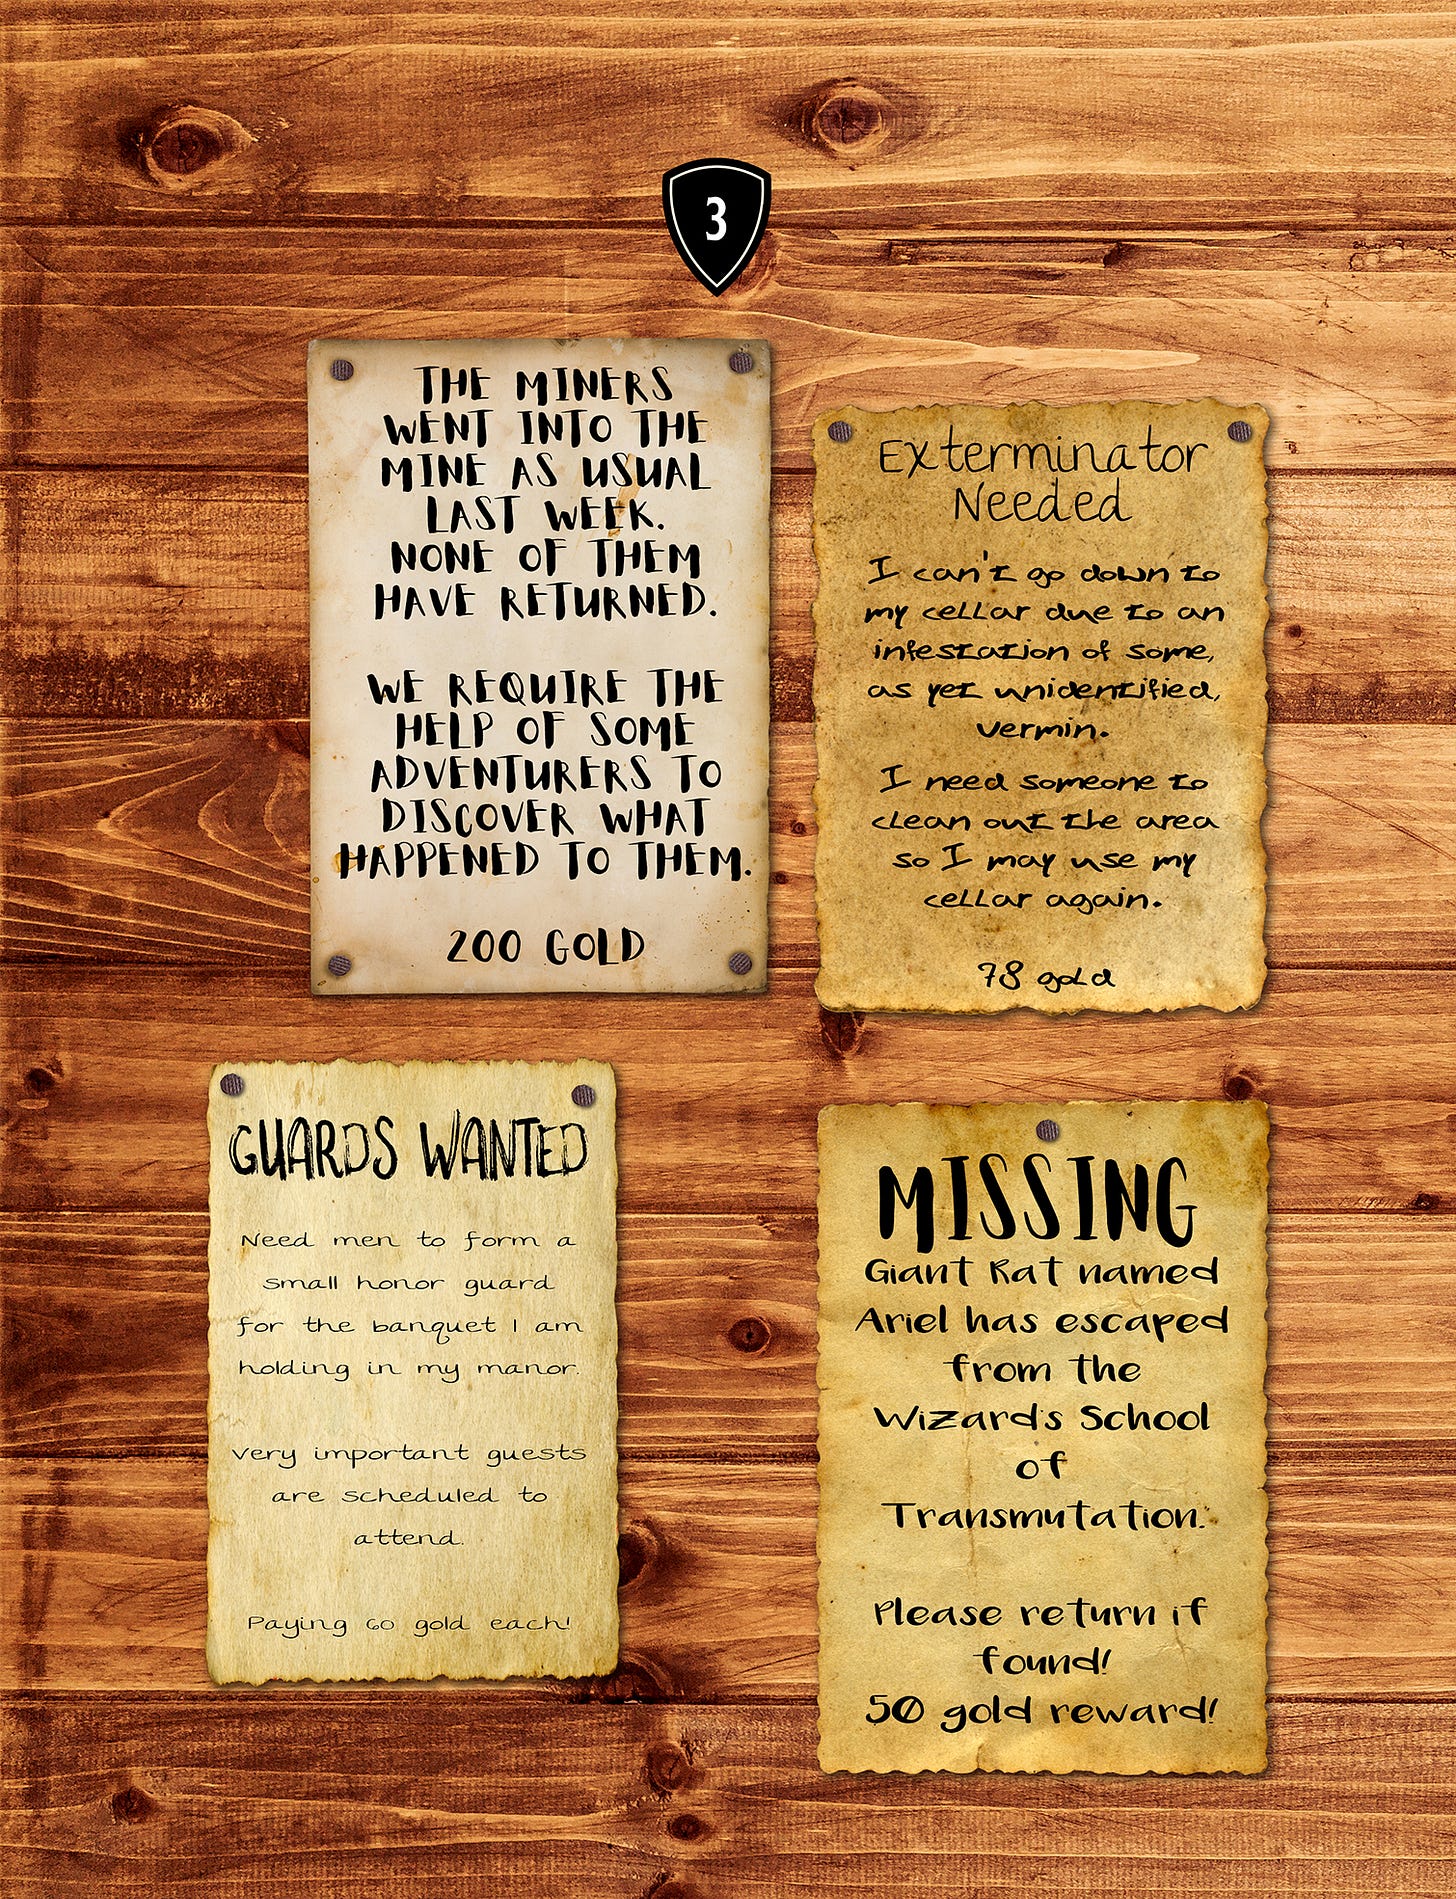 3
THE MINERS
WENT INTO THE
MINE AS USUAL
LAST WEEK.
NONE OF THEM
HAVE RETURNED.
WE REQUIRE THE
HELP OF SOME
ADVENTURERS TO
DISCOVER WHAT
HAPPENED TO THEM.
200 GOLD
Exterminator
Needed
I can't go down to
my cellar due to an
infestation of some,
as yet unidentified,
vermin.
I need someone to
clean out the area
so I may use my
cellar again.
78 gold
GUARDS WANTED
Need men to form a
small honor guard
for the banquet I am
holding in my manor.
Very important guests
are scheduled to
attend.
Paying 60 gold each!
MISSING
Giant Rat named
Ariel has escaped
from the
Wizard's School
of
Transmutation.
Please return if
found!
50 gold reward!